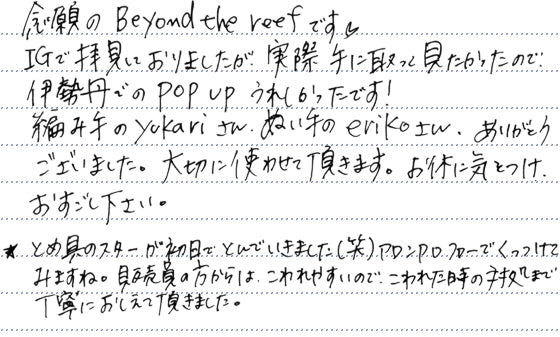 念願の Beyond the reef です。
IGで拝見しておりましたが 実際 手に取って見たかったので
伊勢丹での POP UP うれしかったです!
編み手の yukari さん、ぬい手の eriko さん、ありがとう
ございました。大切に使わせて頂きます。お体に気をつけ、
おすごし下さい。
* とめ具のスターが初日でとんでいきました(笑)アロンアロフローでくっつけて
みますね。販売員の方からは、こわれやすいので、こわれた時の対処まで
丁寧におしえて頂きました。